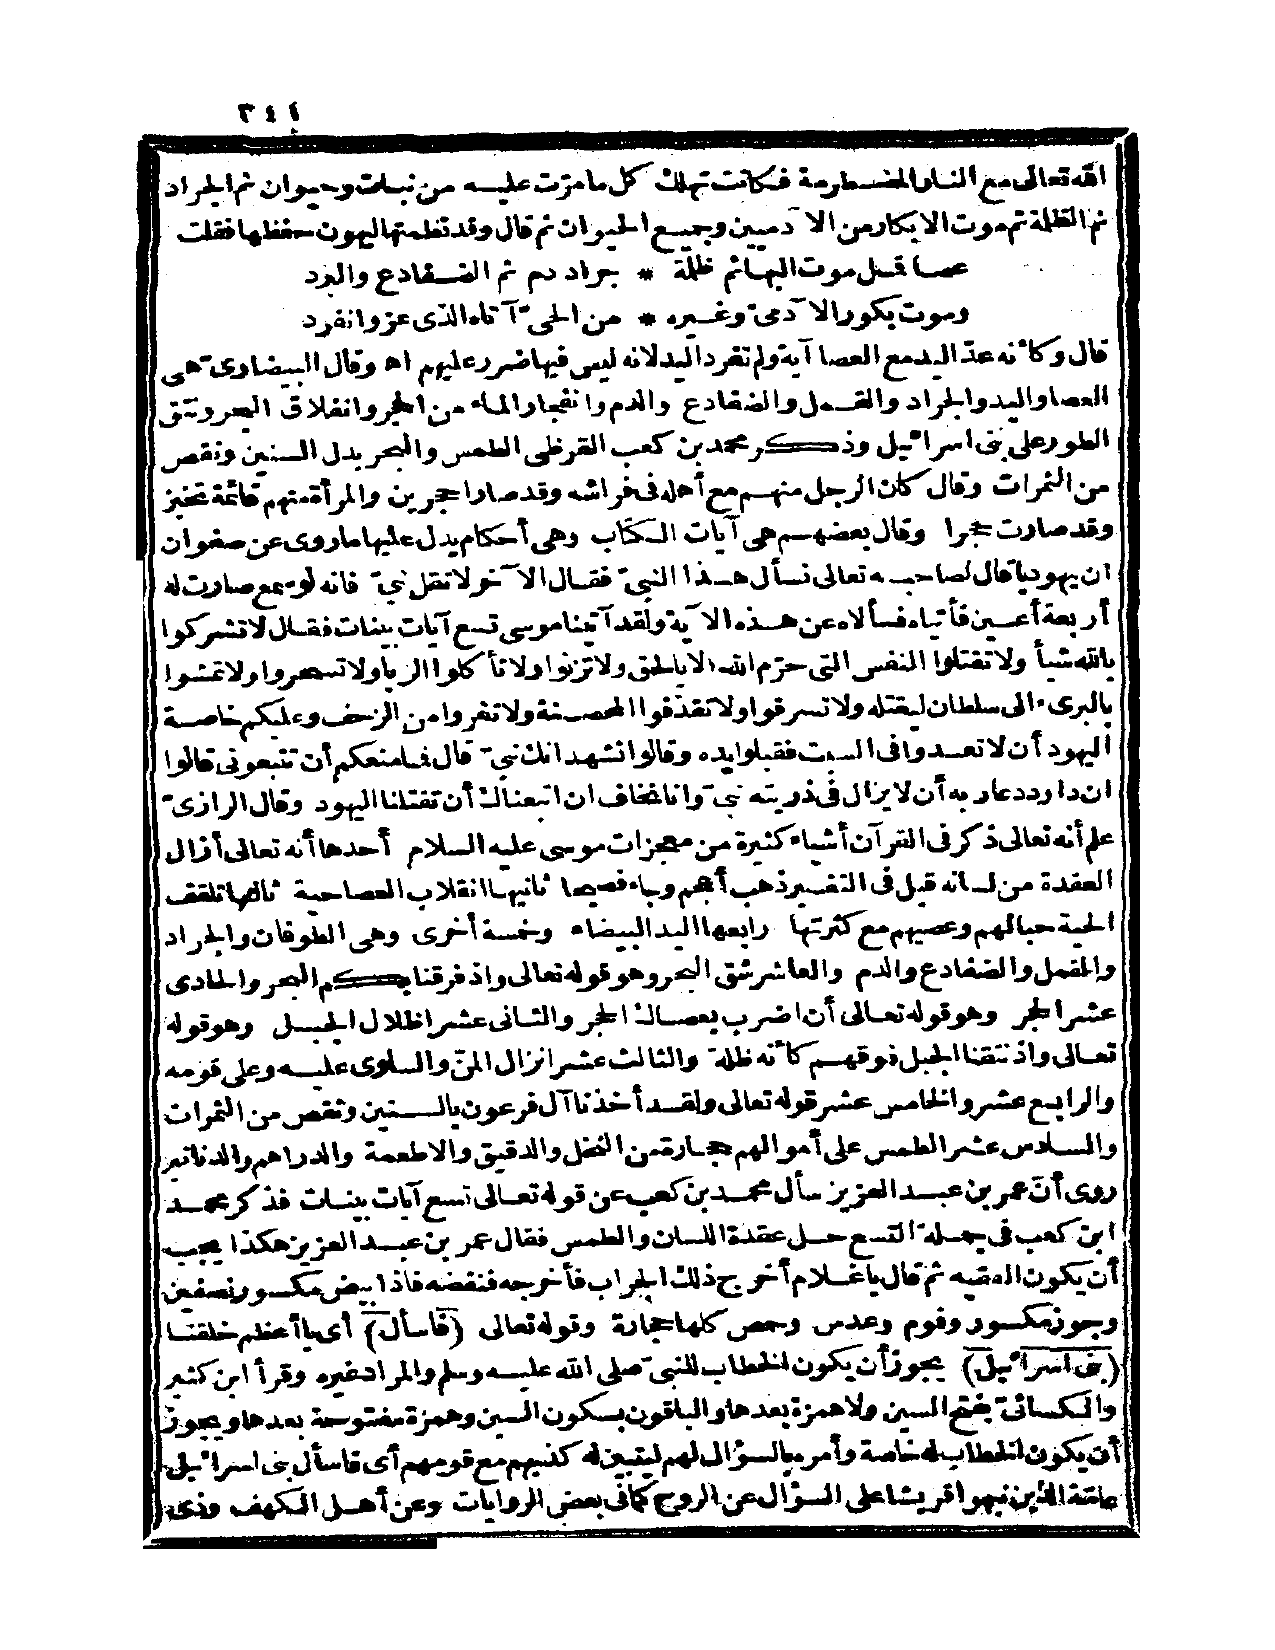 ٣٤٤
الله تعالى مع النار المضطرمة فكانت تهلك كل ما مرّت عليه من نبات وحيوان ثم الجراد
ثم الظلمة ثم موت الابكار من الآدميين وجميع الحيوان ثم قال وقد نظمتها ليهون حفظها فقلت
عصا قمل موت البهائم ظلمة * جراد دم ثم الضفادع والبرد
وموت بكور الآدميّ وغيره * من الحيّ آتاه الذى عز وانفرد
قال وكأنه عدّ اليد مع العصا آية ولم تفرد اليد لانه ليس فيها ضرر عليهم اه وقال البيضاوى هى
العصا واليد والجراد والقمل والضفادع والدم وانفجار الماء من الحجر وانفلاق البحر ونتق
الطور على بنى اسرائيل وذكر محمد بن كعب القرظى الطمس والبحر بدل السنين ونقص
من الثمرات وقال كان الرجل منهم مع أهله فى فراشه وقد صارا حجرين والمرأة منهم قائمة تخبز
وقد صارت حجرا وقال بعضهم هى آيات الكتاب وهى أحكام يدل عليها ما روى عن صفوان
ان يهوديا قال لصاحبه تعالى نسأل هذا النبيّ فقال الآخر لا تقل نبيّ فانه لو سمع صارت له
أربعة أعين فأتياه فسألاه عن هذه الآية ولقد آتينا موسى تسع آيات بينات فقال لا تشركوا
بالله شيأ ولا تقتلوا النفس التى حرّم الله الا بالحق ولا تزنوا ولا تأكلوا الربا ولا تسحروا ولا تمشوا
بالبرىء الى سلطان ليقتله ولا تسرقوا ولا تقذفوا المحصنة ولا تفروا من الزحف وعليكم خاصة
اليهود أن لا تعدوا فى السبت فقبلوا يده وقالوا نشهد انك نبيّ قال فما منعكم أن تتبعونى قالوا
ان داود دعا ربه أن لا يزال فى ذريته نبيّ وانا نخاف ان اتبعناك أن تقتلنا اليهود وقال الرازىّ
علم أنه تعالى ذكر فى القرآن أشياء كثيرة من معجزات موسى عليه السلام أحدها أنه تعالى أزال
العقدة من لسانه قيل فى التفسير ذهب أعجم وجاء فصيحا ثانيها انقلاب العصا حية ثالثها تلقف
الحية حبالهم وعصيهم مع كثرتها رابعها اليد البيضاء وخمسة أخرى وهى الطوفان والجراد
والقمل والضفادع والدم والعاشر شق البحر وهو قوله تعالى واذ فرقنا بكم البحر والحادى
عشر الحجر وهو قوله تعالى أن اضرب بعصاك الحجر والثانى عشر اظلال الجبل وهو قوله
تعالى واذ نتقنا الجبل فوقهم كأنه ظلة والثالث عشر انزال المنّ والسلوى عليه وعلى قومه
والرابع عشر والخامس عشر قوله تعالى ولقد أخذنا آل فرعون بالسنين ونقص من الثمرات
والسادس عشر الطمس على أموالهم حجارة من النخل والدقيق والاطعمة والدراهم والدنانير
روى أنّ عمر بن عبد العزيز سأل محمد بن كعب عن قوله تعالى تسع آيات بينات فذكر محمد
ابن كعب فى جملة التسع حل عقدة اللسان والطمس فقال عمر بن عبد العزيز هكذا يجب
أن يكون الفقيه ثم قال يا غلام أخرج ذلك الجراب فأخرجه فنفضه فاذا بيض مكسور نصفين
وجوز مكسور وفوم وعدس وحمص كلها حجارة وقوله تعالى (فاسأل) أى يا أعظم خلقنا
(بنى اسرائيل) يجوز أن يكون الخطاب للنبى صلى الله عليه وسلم والمراد غيره وقرأ ابن كثير
والكسائىّ بفتح السين ولا همزة بعدها والباقون بسكون السين وهمزة مفتوحة بعدها ويجوز
أن يكون الخطاب له خاصة وأمره بالسؤال لهم ليتبين له كذبهم مع قومهم أى فاسأل بنى اسرائيل
عامّة الذين نبهوا قريشا على السؤال عن الروح كما فى بعض الروايات وعن أهل الكهف وذى